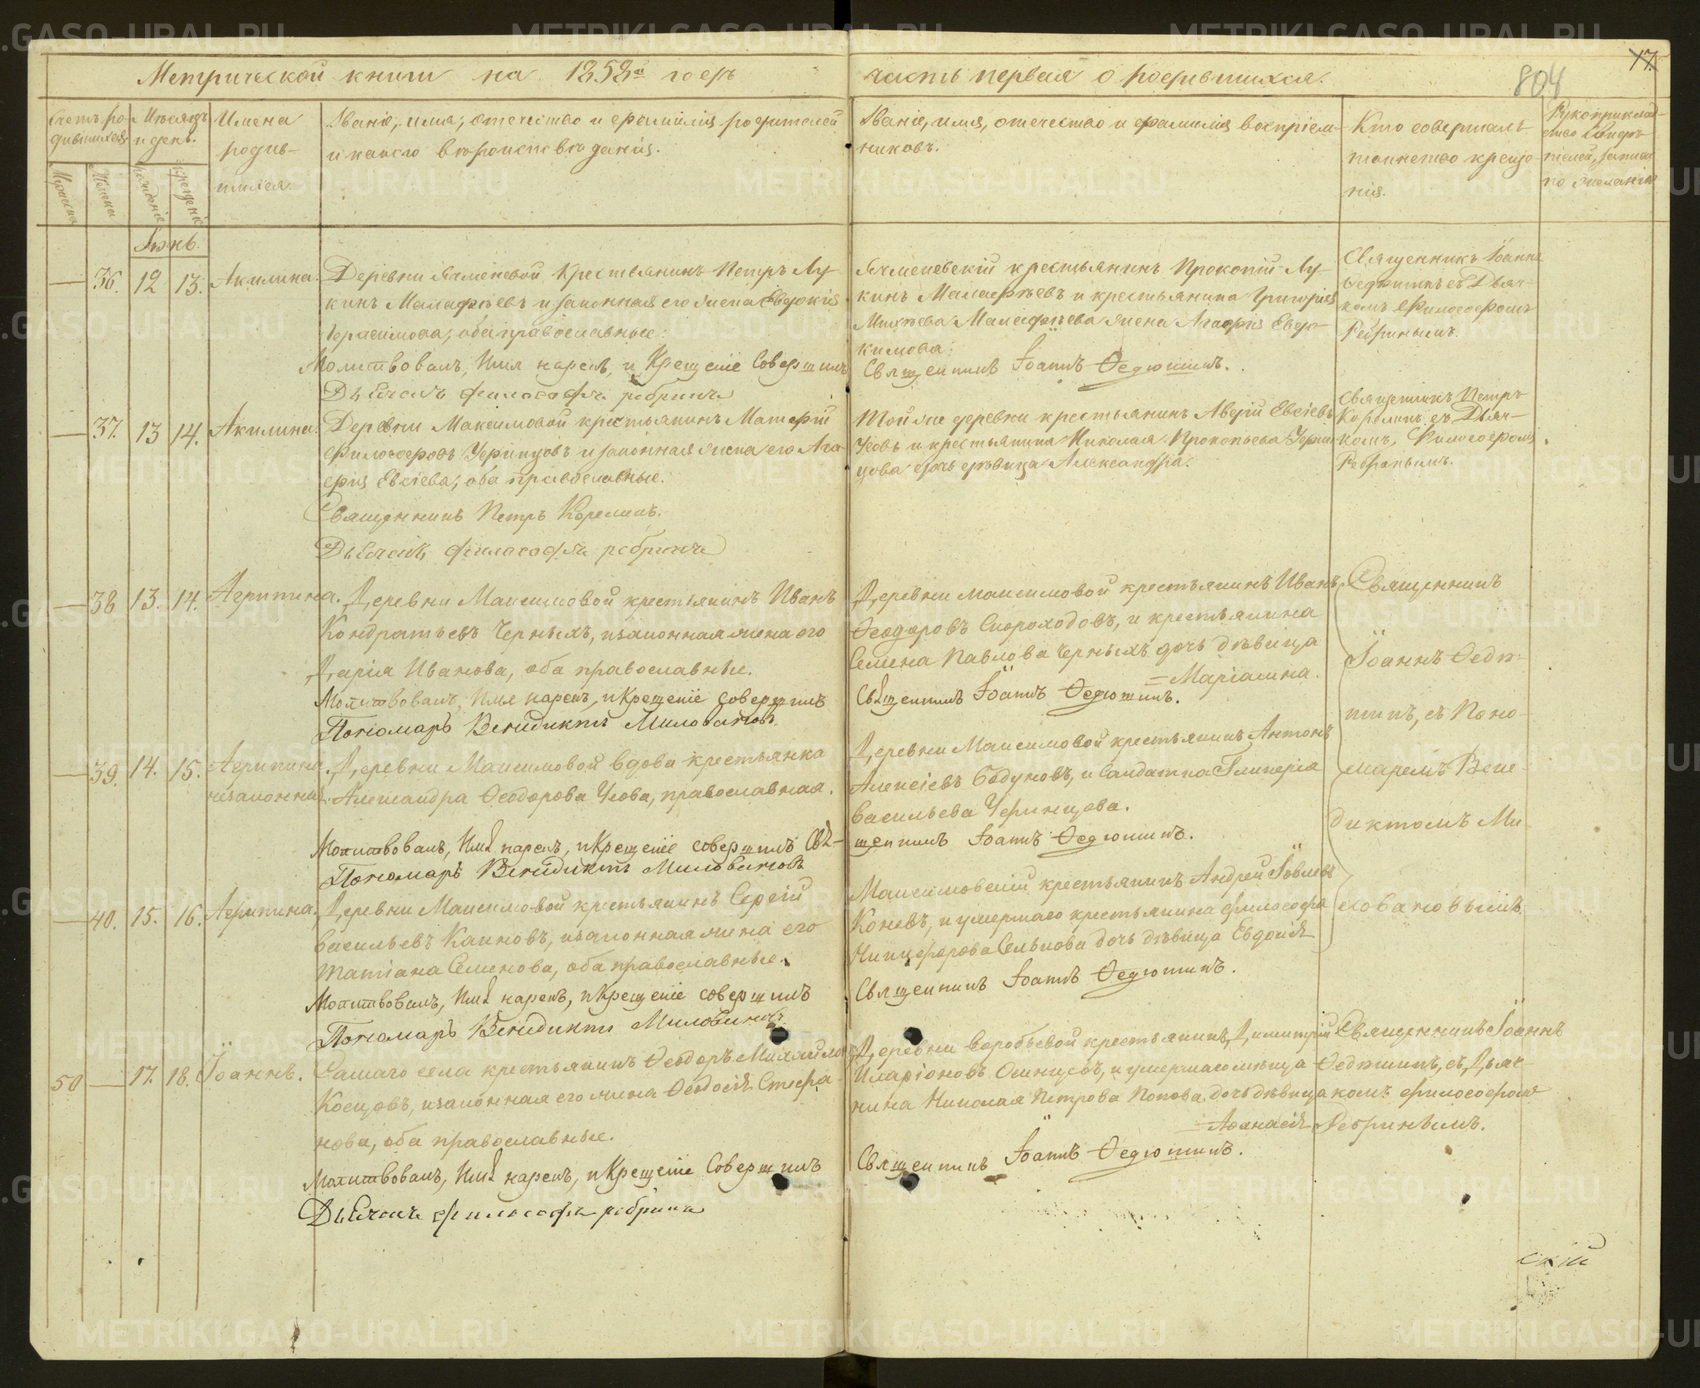 Метрической книги на 1858й годъ
часть первая о родившихся.
804
17.
Счетъ родившихся
Мѣсяцъ и день.
Имена родившихся.
Званіе, имя, отечество и фамилія родителей
и какого вѣроисповѣданія.
Званіе, имя, отечество и фамилія воспріем-
никовъ.
Кто совершалъ
таинство креще-
нія.
Мужеска
Женска
Рожденія
Крещенія
Іюнь.
36. 12 13. Акилина.
Деревни Ячменевой крестьянинъ Петръ Лу-
кинъ Малафѣевъ и законная его жена Евдокія
Герасимова, оба православные.
Молитвовалъ, Имя нарекъ, и Крещеніе Совершилъ
Дьячекъ Философъ Ребринъ
Ячменевскій крестьянинъ Прокопій Лу-
кинъ Малафѣевъ и крестьянина Григорія
Михѣева Малафѣева жена Агафія Евдо-
кимова.
Священникъ Іоаннъ Ѳедюшинъ.
Священникъ Іоаннъ
Ѳедюшинъ съ Дьяч-
комъ Философомъ
Ребринымъ.
37. 13 14. Акилина.
Деревни Максимовой крестьянинъ Матфій
Философовъ Черницовъ и законная жена его Ага-
фія Евсіева, оба православные.
Священникъ Петръ Корелинъ.
Дьячекъ Философъ Ребринъ
Той же деревни крестьянинъ Авдій Евсіевъ
Усовъ и крестьянина Николая Прокопьева Черни-
цова дочь дѣвица Александра.
Священникъ Петръ
Корелинъ съ Дьяч-
комъ Философомъ
Ребринымъ.
38 13. 14. Агрипина.
Деревни Максимовой крестьянинъ Иванъ
Кондратьевъ Черныхъ, и законная жена его
Дарія Иванова, оба православные.
Молитвовалъ, Имя нарекъ, и Крещеніе совершилъ
Пономарь Венидиктъ Миловановъ
Деревни Максимовой крестьянинъ Иванъ
Ѳеодоровъ Скороходовъ, и крестьянина
Семена Павлова Черныхъ дочь дѣвица
= Маріамна.
Священникъ Іоаннъ Ѳедюшинъ.
Священникъ
Іоаннъ Ѳедю-
шинъ, съ Поно-
маремъ Вени-
диктомъ Ми-
ловановымъ
39. 14. 15. Агрипина
незаконная.
Деревни Максимовой вдова крестьянка
Александра Ѳеодорова Усова, православная.
Молитвовалъ, Имя нарекъ, и Крещеніе совершилъ Свя-
Пономарь Венидиктъ Миловановъ
Деревни Максимовой крестьянинъ Антонъ
Алексіевъ Бадуновъ, и Солдатка Гликерія
Васильева Черницова.
щенникъ Іоаннъ Ѳедюшинъ.
40. 15. 16. Агрипина.
Деревни Максимовой крестьянинъ Сергій
Васильевъ Каиновъ, и законная жена его
Татіана Семенова, оба православные.
Молитвовалъ, Имя нарекъ, и Крещеніе совершилъ
Пономарь Венидиктъ Миловановъ
Максимовскій крестьянинъ Андрей Іовлевъ
Коневъ, и умершаго крестьянина Философа
Никифорова дочь дѣвица Евдокія
Священникъ Іоаннъ Ѳедюшинъ.
50 17. 18. Іоаннъ.
крестьянинъ Ѳеодоръ Михайловъ
Косцовъ, и законная его жена Ѳеодосія Стефа-
нова, оба православные.
Молитвовалъ, Имя нарекъ, и Крещеніе Совершилъ
Дьячекъ Философъ Ребринъ
Деревни Воробьевой крестьянинъ, Димитрій
Иларіоновъ Осинцовъ, и умершаго
Николая Петрова Попова, дочь дѣвица
Аѳанасія
Священникъ Іоаннъ Ѳедюшинъ.
Священникъ Іоаннъ
Ѳедюшинъ, съ Дьяч-
комъ Философомъ
Ребринымъ.
скій
METRIKI.GASO-URAL.RU